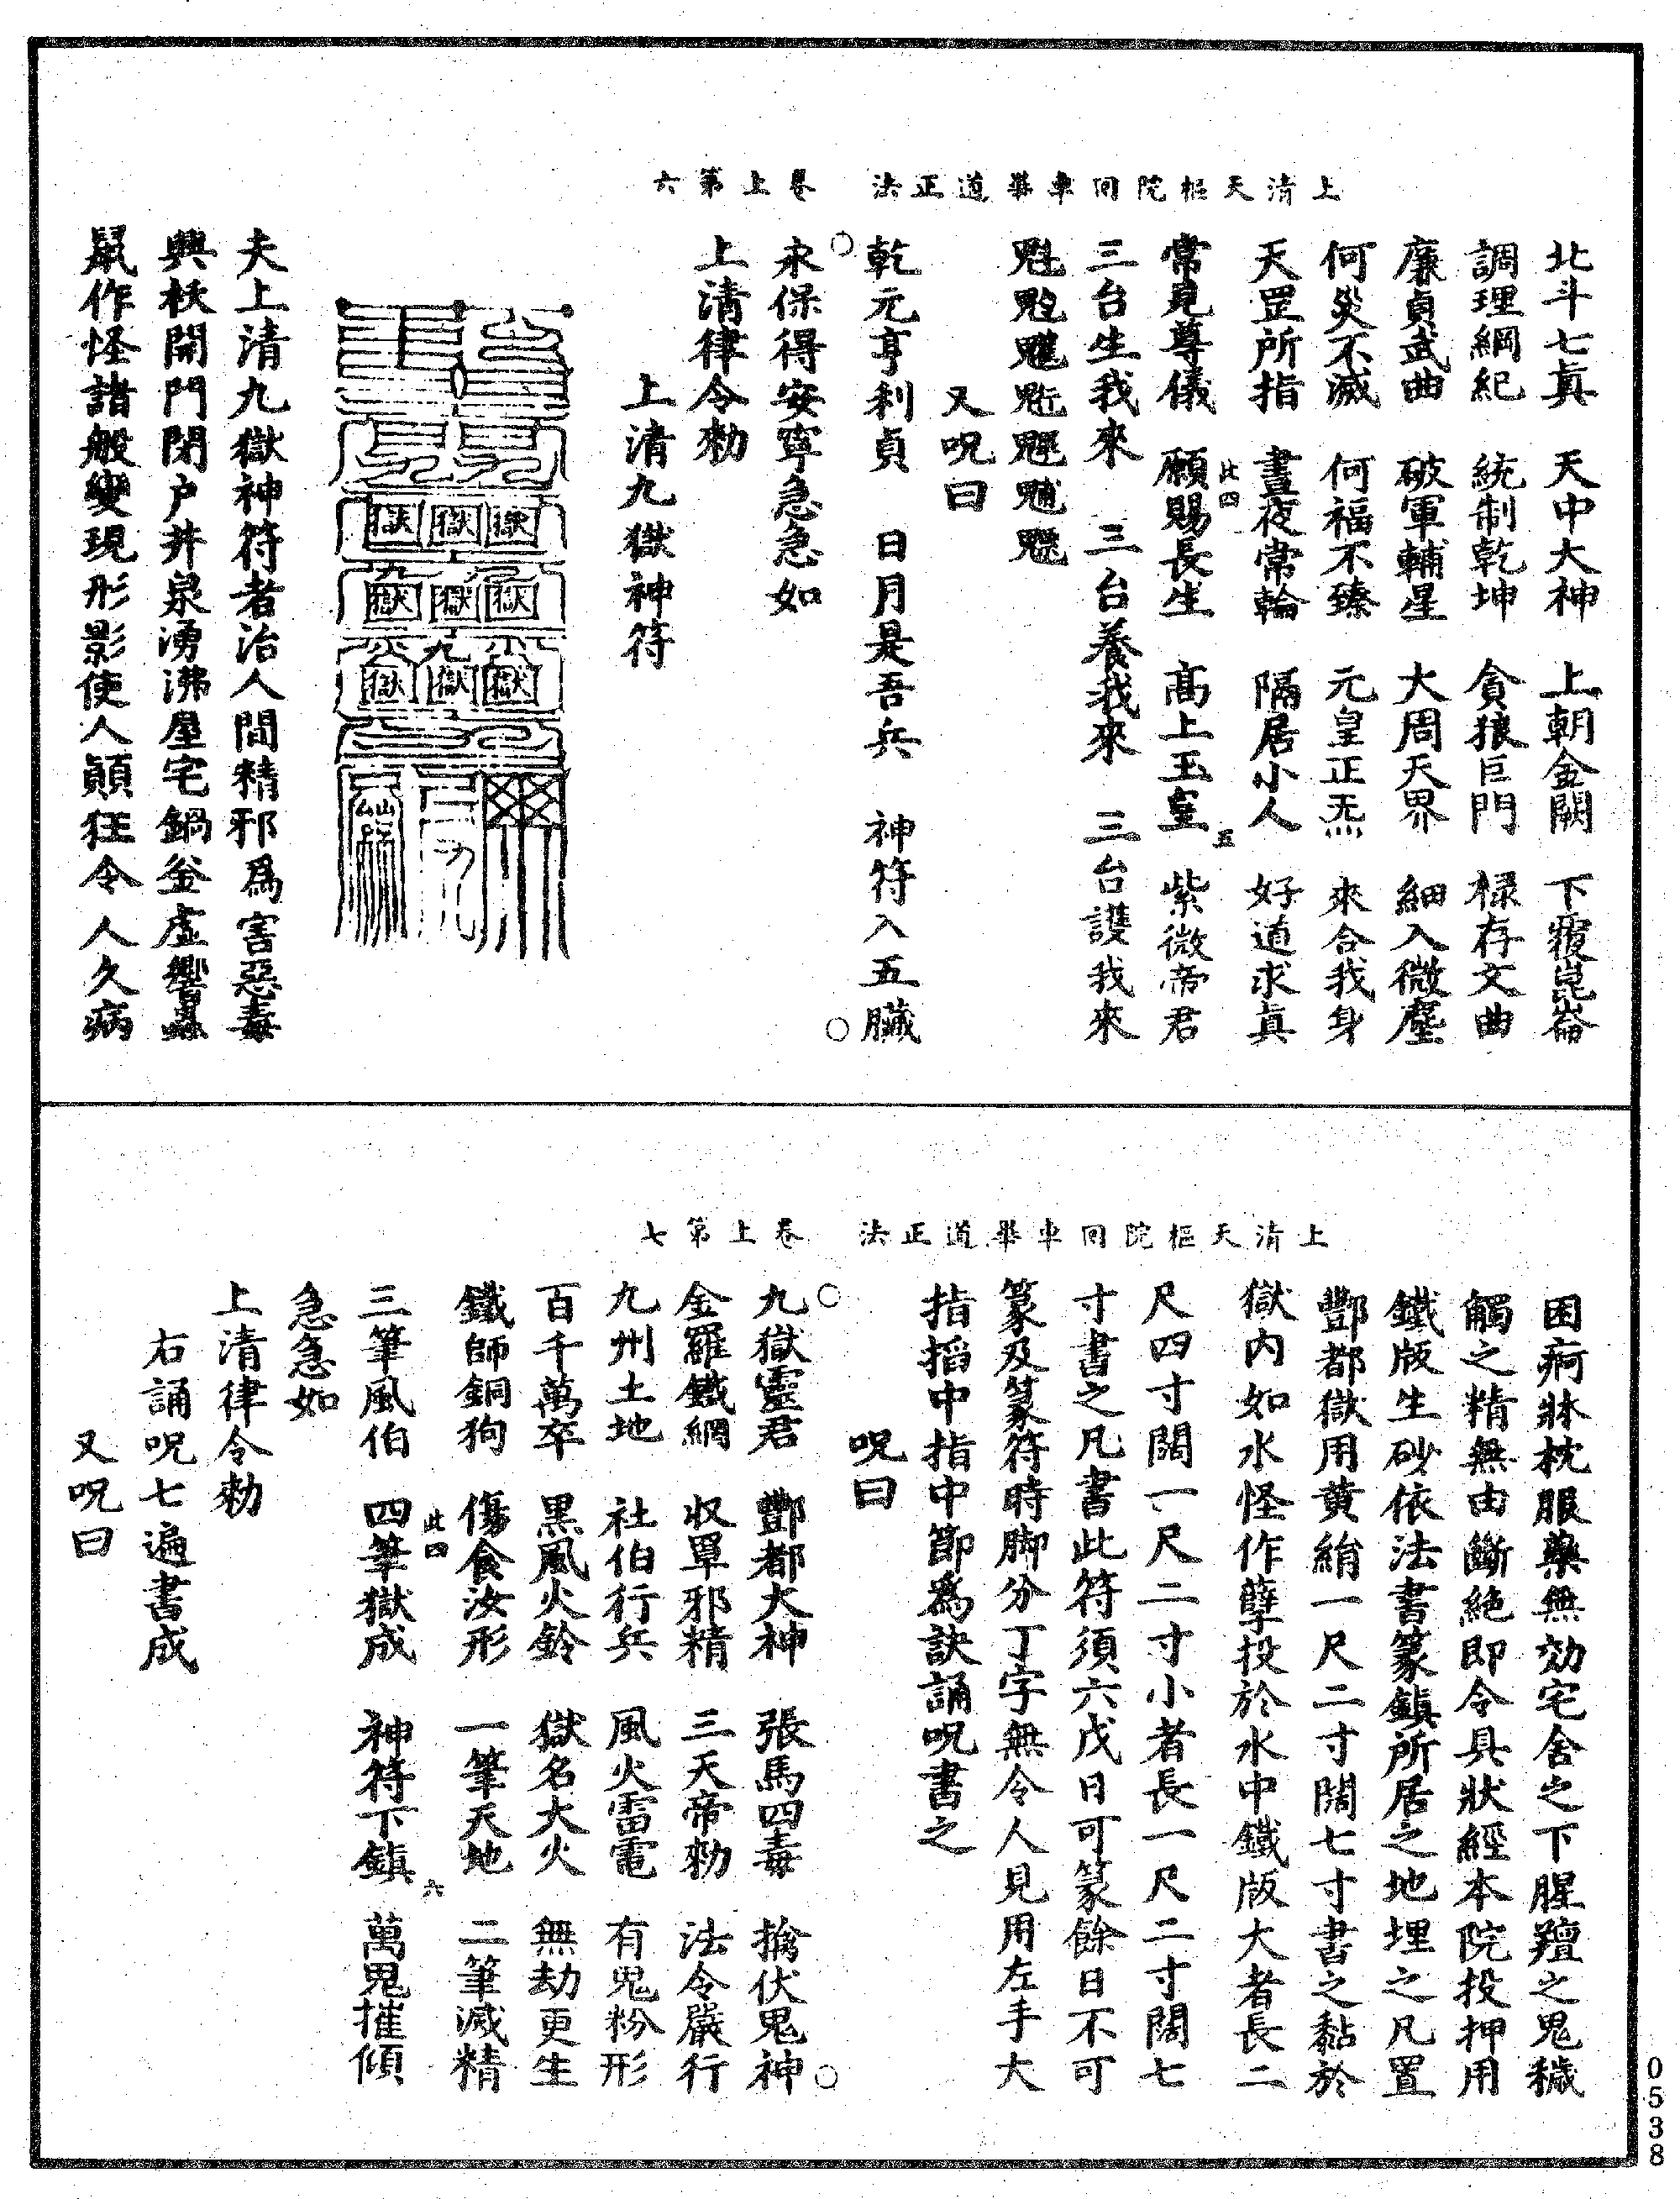 上清天樞院回車畢道正法　卷上第六
北斗七真　天中大神　上朝金闕　下覆崑崙
調理綱紀　統制乾坤　貪狼巨門　祿存文曲
廉貞武曲　破軍輔星　大周天界　細入微塵
何災不滅　何福不臻　元皇正炁　來合我身
天罡所指　晝夜常輪　隔居小人　好道求真
此四　五
常見尊儀　願賜長生　高上玉皇　紫微帝君
三台生我來　三台養我來　三台護我來
魁䰢䰡魓䰣魒魑
又呪曰
乾元亨利貞　日月是吾兵　神符入五臟
永保得安寧急急如
上清律令勑
上清九獄神符
獄獄獄
獄獄獄
九
獄獄獄
夫上清九獄神符者治人間精邪爲害惡毒
興妖開門閉戶井泉湧沸屋宅鍋釜虛響蟲
鼠作怪諸般變現形影使人顛狂令人久病
上清天樞院回車畢道正法　卷上第七
困痾牀枕服藥無効宅舍之下腥羶之鬼穢
觸之精無由斷絕即令具狀經本院投押用
鐵版生砂依法書篆鎮所居之地埋之凡置
酆都獄用黃絹一尺二寸闊七寸書之黏於
獄內如水怪作孽投於水中鐵版大者長二
尺四寸闊一尺二寸小者長一尺二寸闊七
寸書之凡書此符須六戊日可篆餘日不可
篆及篆符時脚分丁字無令人見用左手大
指掐中指中節爲訣誦呪書之
呪曰
九獄靈君　酆都大神　張馬四毒　擒伏鬼神
金羅鐵網　収罩邪精　三天帝勑　法令嚴行
九州土地　社伯行兵　風火雷電　有鬼粉形
百千萬卒　黑風火鈴　獄名大火　無劫更生
鐵師銅狗　傷食汝形　一筆天地　二筆滅精
此四　六
三筆風伯　四筆獄成　神符下鎮　萬鬼摧傾
急急如
上清律令勑
右誦呪七遍書成
又呪曰
0538